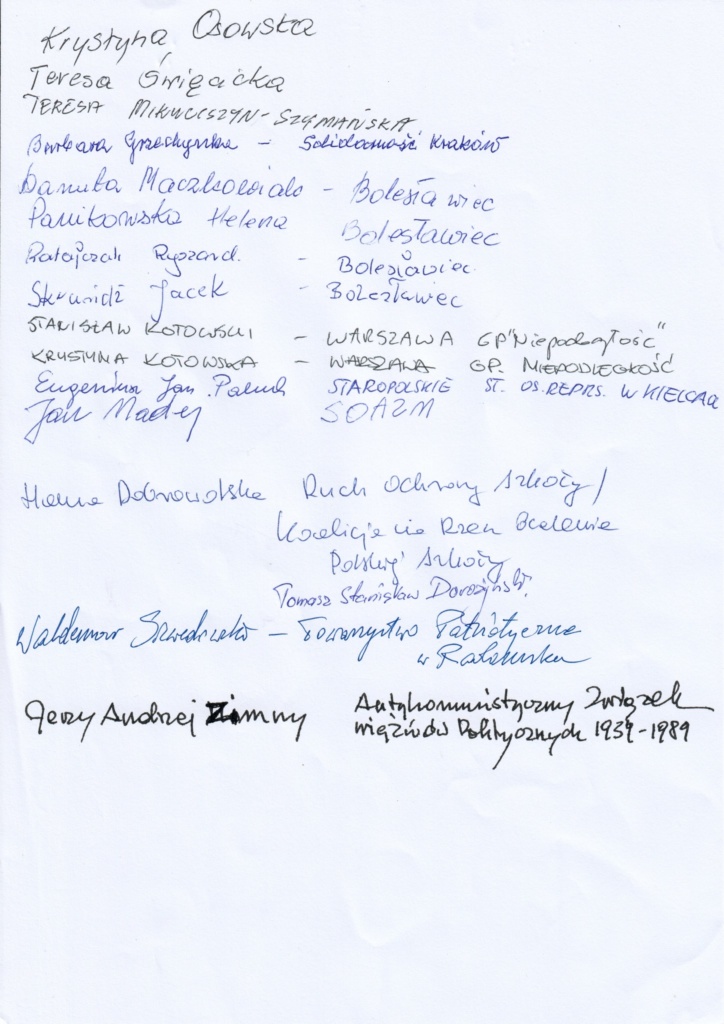 Krystyna Osowska
Teresa Święcicka
TERESA MIKULSZYN-SZYMAŃSKA
Barbara Grzechynka – Solidarność Kraków
Danuta Maczkowiak – Bolesławiec
Panikowska Helena Bolesławiec
Ratajczak Ryszard. – Bolesławiec
Jacek – Bolesławiec
STANISŁAW KOTOWSKI – WARSZAWA GP "Niepodległość"
KRYSTYNA KOTOWSKA – WARSZAWA GP. NIEPODLEGŁOŚĆ
Eugeniusz Jan Paluch STAROPOLSKIE ST. OS. REPRS. W KIELCACH
Jan Madej SOAZM
Hanna Dobrowolska Ruch Ochrony Szkoły /
Koalicja na Rzecz Ocalenia
Polskiej Szkoły
Tomasz Stanisław Dorożyński.
Waldemar – Towarzystwo Patriotyczne
w Radomsku
Jerzy Andrzej Zimny Antykomunistyczny Związek
Więźniów Politycznych 1939-1989